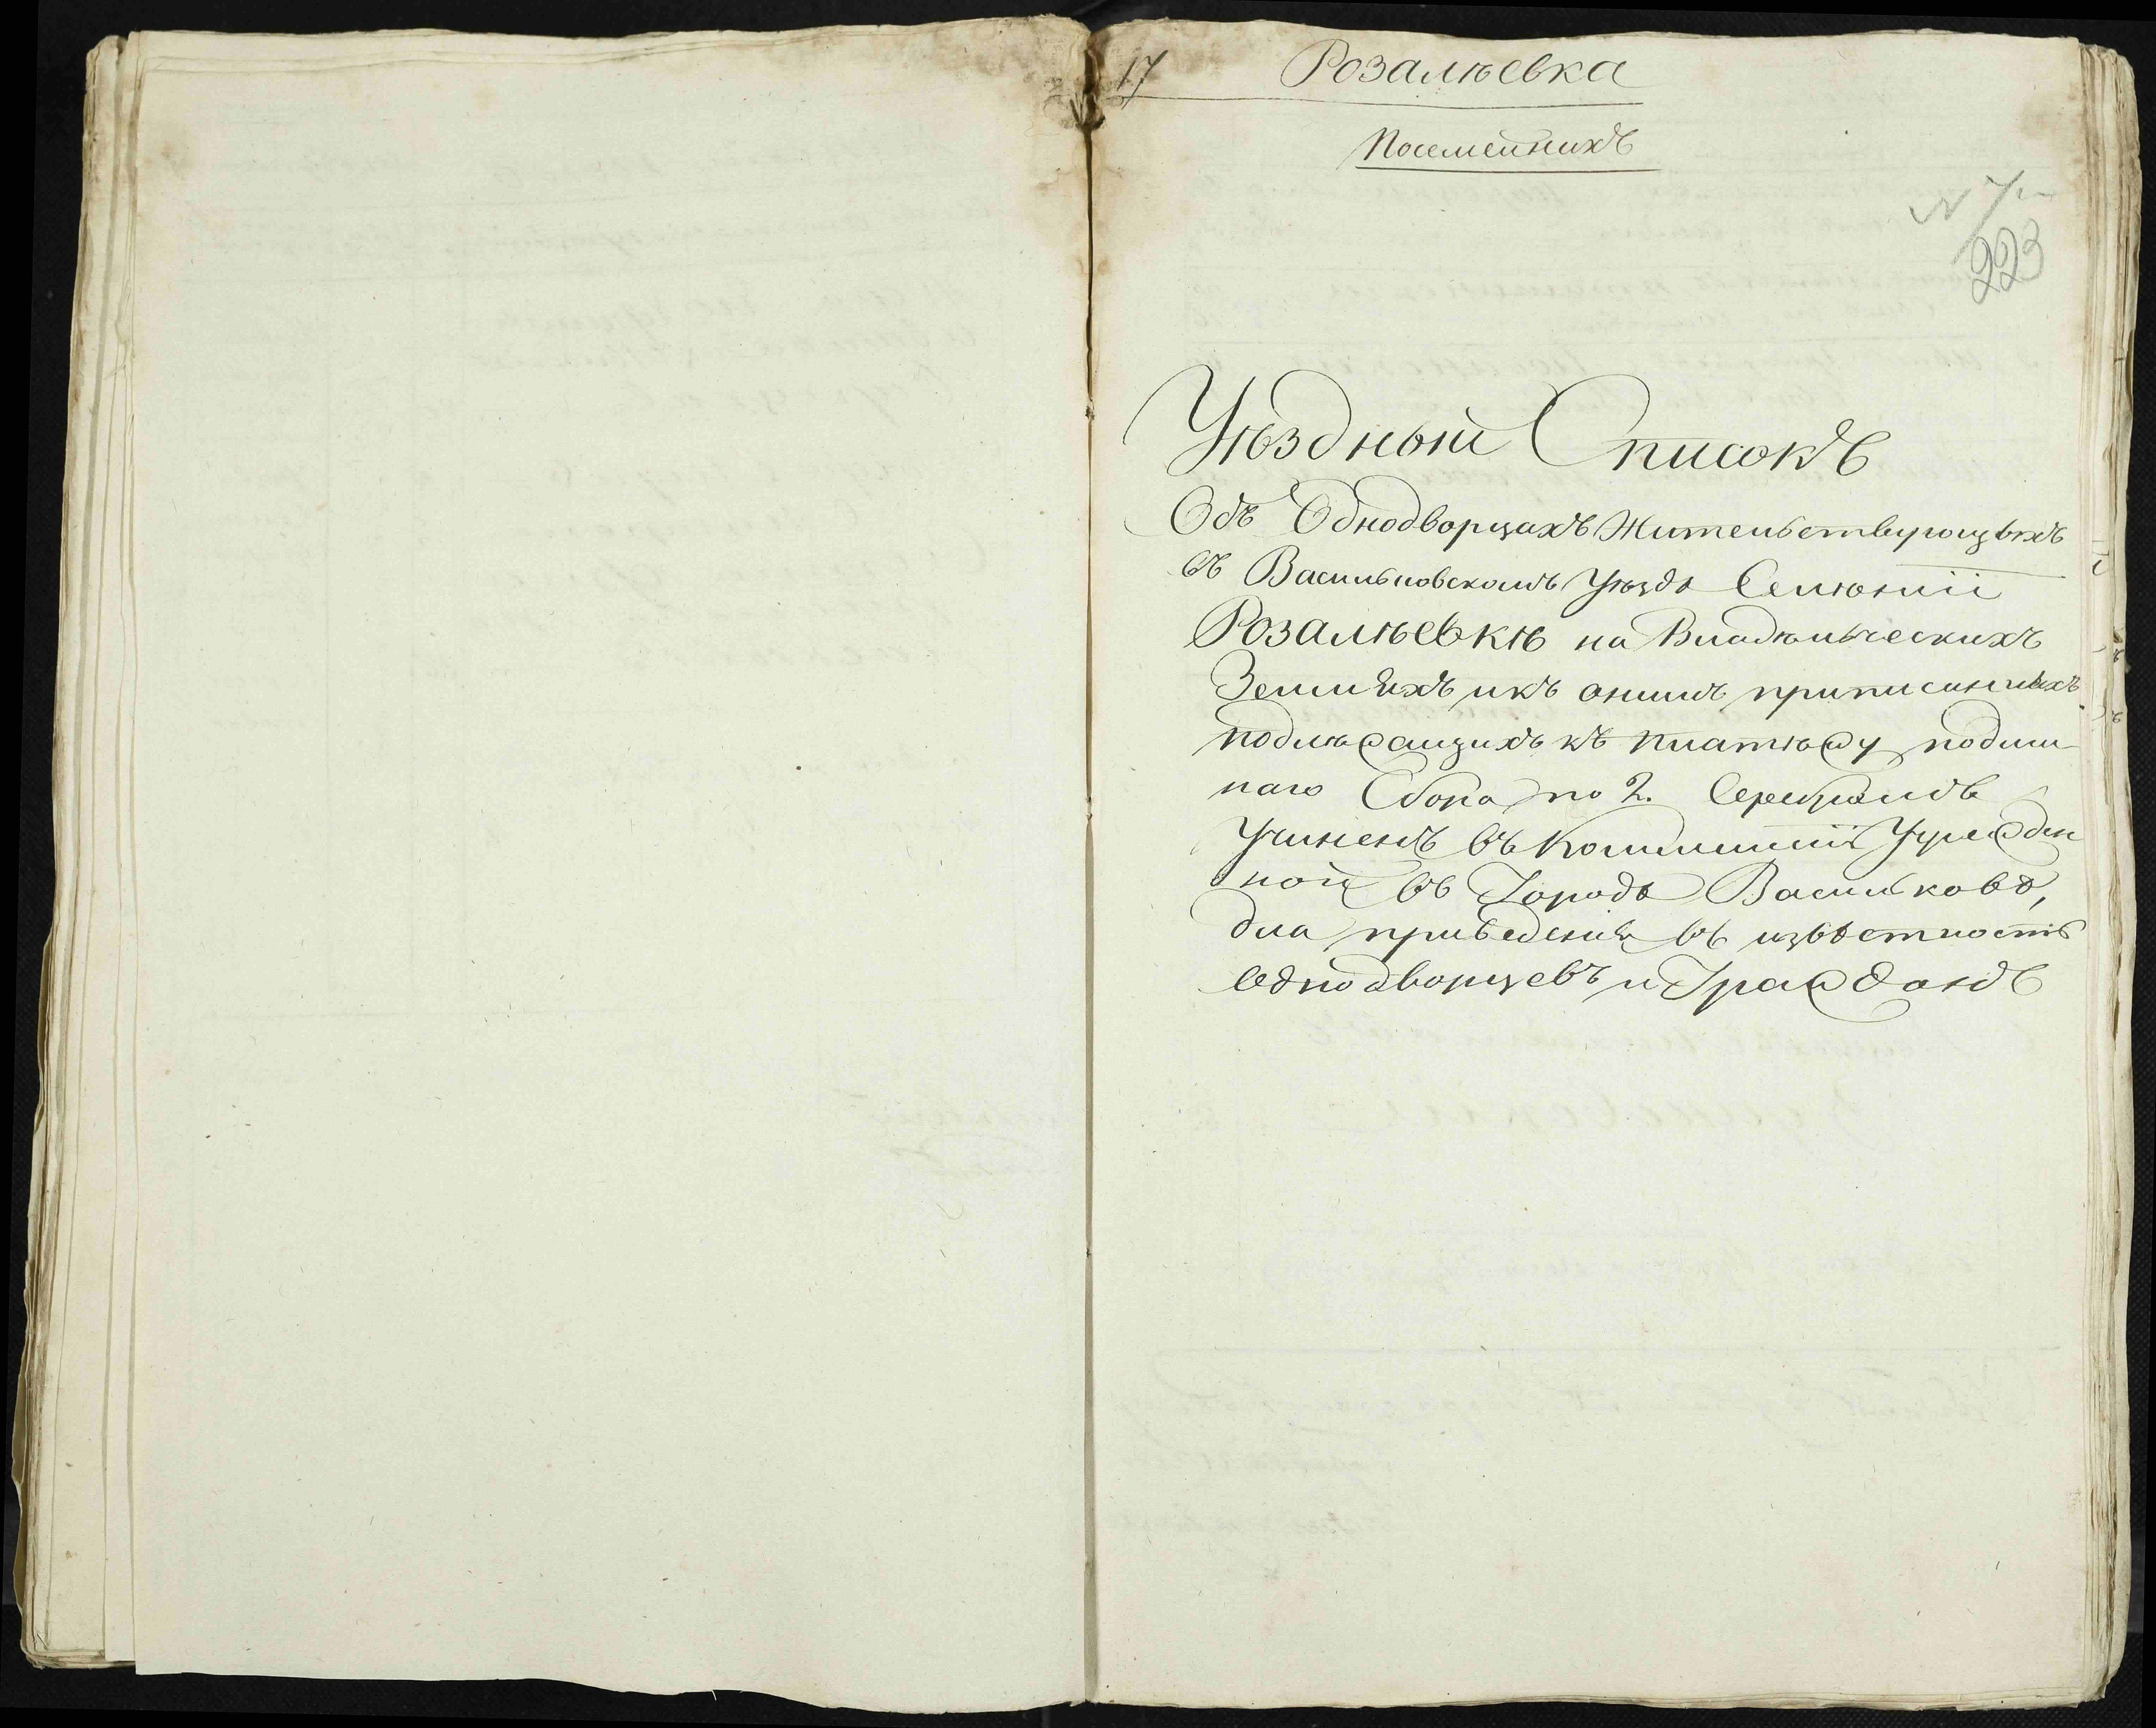 17 Розалѣевка
Посемейнихъ
223
Уѣздный Списокъ
Объ Однодворцахъ Жительствующыхъ
въ Васильковскомъ Уѣздѣ Селѣніи
Розалѣевкѣ на Владѣльческихъ
Земляхъ и къ онымъ приписанныхъ
подлѣжащихъ къ платѣжу подым
наго Сбора по 2. Серебромъ
Учиненъ въ Коммиссіи Учрежден
ной въ Городѣ Васильковѣ,
для приведенія въ извѣстность
Однодворцевъ и Гражданъ